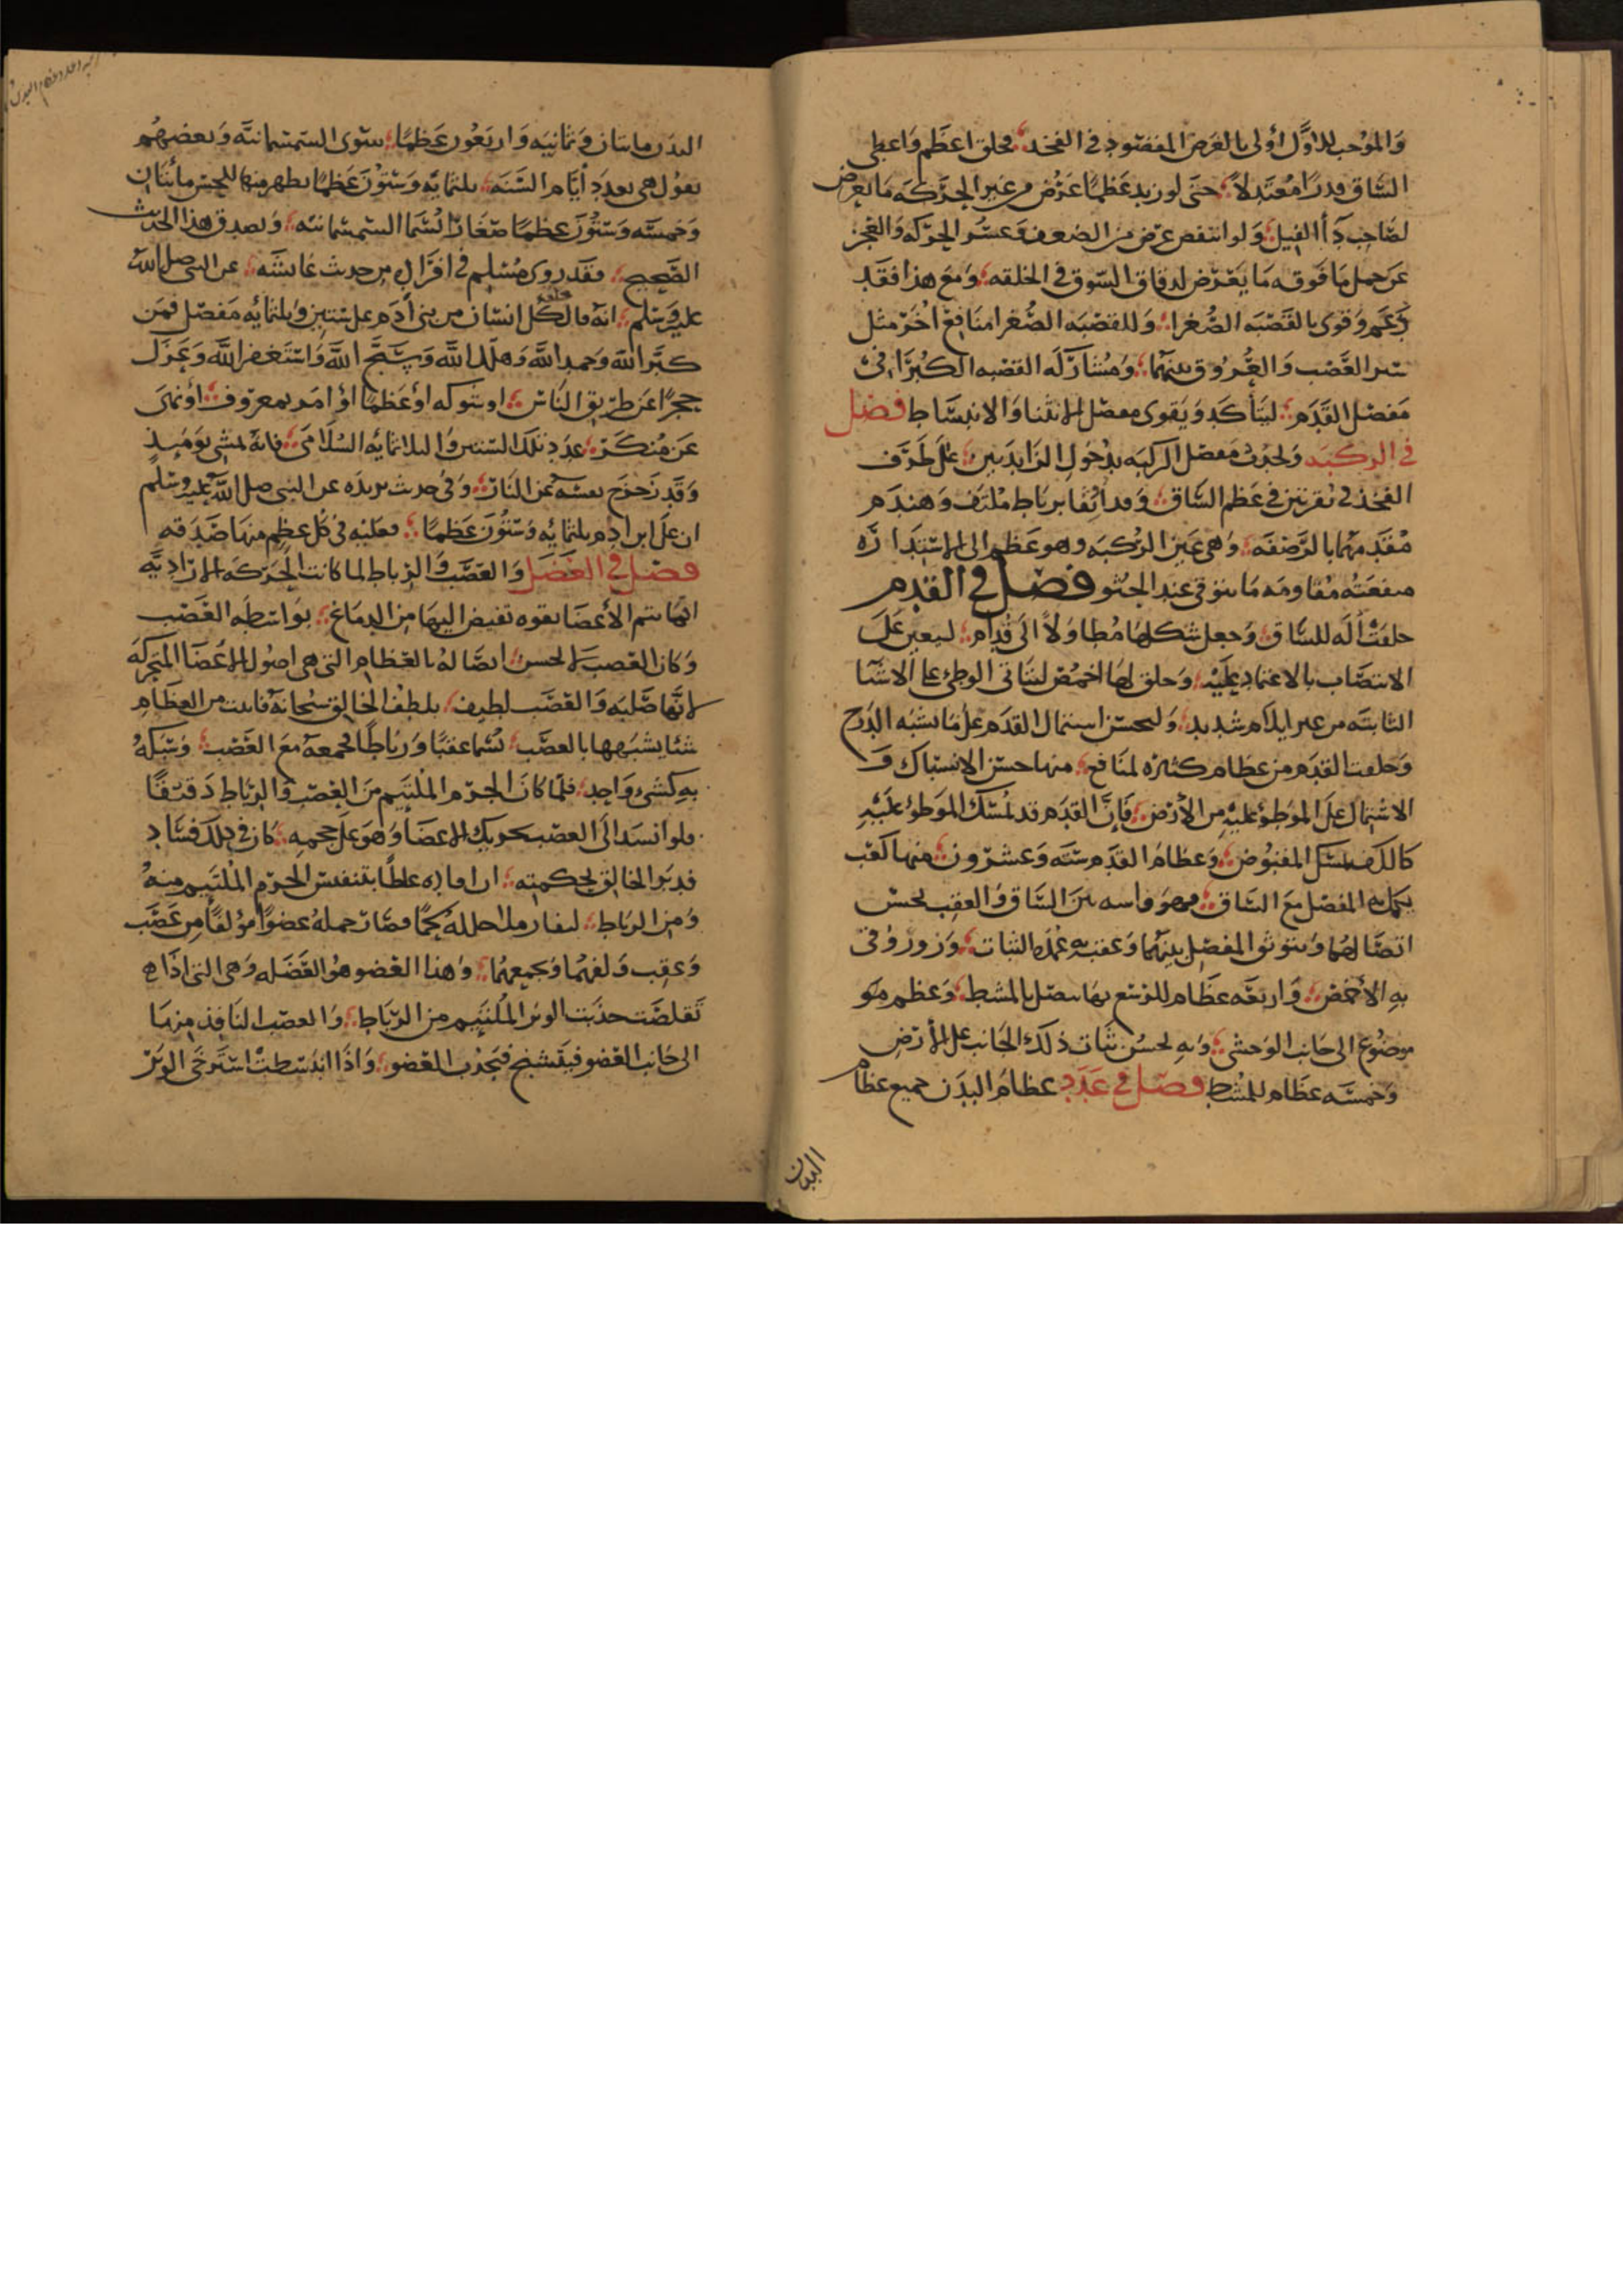 والموجب للاول أولى بالغرض المقصود في الفخذ؛ فخلق اعظم واعطى
الساق قدرا معتدلا؛ حتى لو زيد عظما عرض من عسر الحركه ما يعرض
لصاحب دآ الفيل؛ ولو انتقص عرض من الضعف وعسر الحركه والعجز
عن حمل ما فوقه ما يعرض لدقاق السوق في الخلقه؛ ومع هذا فقد
دعم وقوى بالقصبه الصغرا؛ وللقصبه الصغرا منافع اخر مثل
ستر العصب والعروق بينهما؛ ومشاركه القصبه الكبرا في
مفصل القدم؛ ليتأكد ويقوى مفصل الانثنا والانبساط فصل
في الركبه ويحدث مفصل الركبه بدخول الزايدتين؛ على طرف
الفخذ في نقرتين في عظم الساق؛ وقد اثقا برباط ملتف وهندم
مقدمهما بالرضفه؛ وهى عين الركبه وهو عظم الى الاستداره
منفعته مقاومه ما يتوقى عند الجثو فصل في القدم
خلقت أله للساق؛ وجعل شكلها مطاولا الى قدام؛ ليعين على
الانتصاب بالاعتماد عليه؛ وخلق لها اخمص ليتاتى الوطئ على الاشيا
الثابته من غير ايلام شديد؛ وليحسن اشتمال القدم على ما يشبه الدرج
وخلقت القدم من عظام كثيره لمنافع؛ منها حسن الاستمساك و
الاشتمال على الموطوء عليه من الأرض؛ فإن القدم قد تمسك الموطوء عليه
كالكف تمسك المقبوض؛ وعظام القدم سته وعشرون؛ منها كعب
يكمل به المفصل مع الساق؛ وهو واسطه بين الساق والعقب يحسن
اتصالهما ويتوثق المفصل بينهما وعقب به عمده الثبات؛ وزورقى
به الأخمص؛ واربعه عظام للرسغ بها يتصل بالمشط؛ وعظم منه
موضوع الى جانب الوحشى؛ وبه يحسن ثبات ذلك الجانب على الأرض
وخمسه عظام للمشط فصل في عدد عظام البدن جميع عظام
البدن
البدن مايتان وثمانيه واربعون عظما؛ سوى السمسمانيه وبعضهم
يقول هى بعدد أيام السنه؛ ثلثمايه وستون عظما يظهر منها للحس مأيتان
وخمسه وستون عظما صغارا تسما السمسمانيه؛ ويصدق هذا الحديث
الصحيح؛ فقد روى مسلم في افراده من حديث عايشه؛ عن النبي صلى الله
عليه وسلم؛ انه قال خلق كل انسان من بنى أدم على ستين وثلثمايه مفصل فمن
كبر الله وحمد الله وهلل الله وسبح الله واستغفر الله وعزل
حجرا عن طريق الناس؛ او شوكه أو عظما أو امر بمعروف؛ أو نهى
عن منكر؛ عدد تلك الستين والثلاثمايه السلامى؛ فانه يمشى يوميذ
وقد زحزح نفسه عن النار؛ وفي حديث بريده عن النبي صلى الله عليه وسلم
ان على ابن ادم ثلثمايه وستون عظما؛ فعليه في كل عظم منها صدقه
فصل في العضل والعصب والرباط لما كانت الحركه الاراديه
انما تتم للأعضا بقوه تفيض اليها من الدماغ؛ بواسطه العصب
وكان العصب لا يحسن؛ اتصاله بالعظام التى هى اصول للاعضا المتحركه
لانها صلبه والعصب لطيف؛ تلطف الخالق سبحانه فانبت من العظام
شئا يشبهها بالعصب؛ تسما عقبا ورباطا فجمعه مع العصب؛ وشبكه
به كشىء واحد؛ فلما كان الجرم الملتيم من العصب والرباط دقيقا
فلو اسند الى العصب تحريك الاعضا وهو على حجمه؛ كان في ذلك فساد
فدبر الخالق بحكمته؛ ان افاده غلظا بتنفيش الجرم الملتيم منه
ومن الرباط؛ ليفا وملا خلله لحما فصار جمله عضوا مؤلفا من عصب
وعقب وليفهما ولحمهما؛ وهذا العضو هو العضله وهى التى اذا
تقلصت جذبت الوتر الملتيم من الرباط؛ والعصب النافذ منها
الى جانب العضو فيتشنج فيجذب العضو؛ واذا انبسطت استرخى الوتر